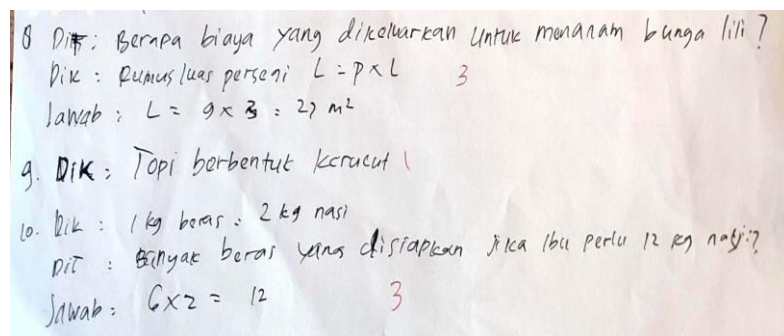 8 Dit : Berapa biaya yang dikeluarkan untuk menanam bunga lili ?
Dik : Rumus luas persegi L = P x L 3
Jawab : L = 9 x 3 = 27 m²
9. Dik : Topi berbentuk kerucut 1
10. Dik : 1 kg beras = 2 kg nasi
Dit : Banyak beras yang disiapkan jika Ibu perlu 12 kg nasi ?
Jawab : 6 x 2 = 12 3